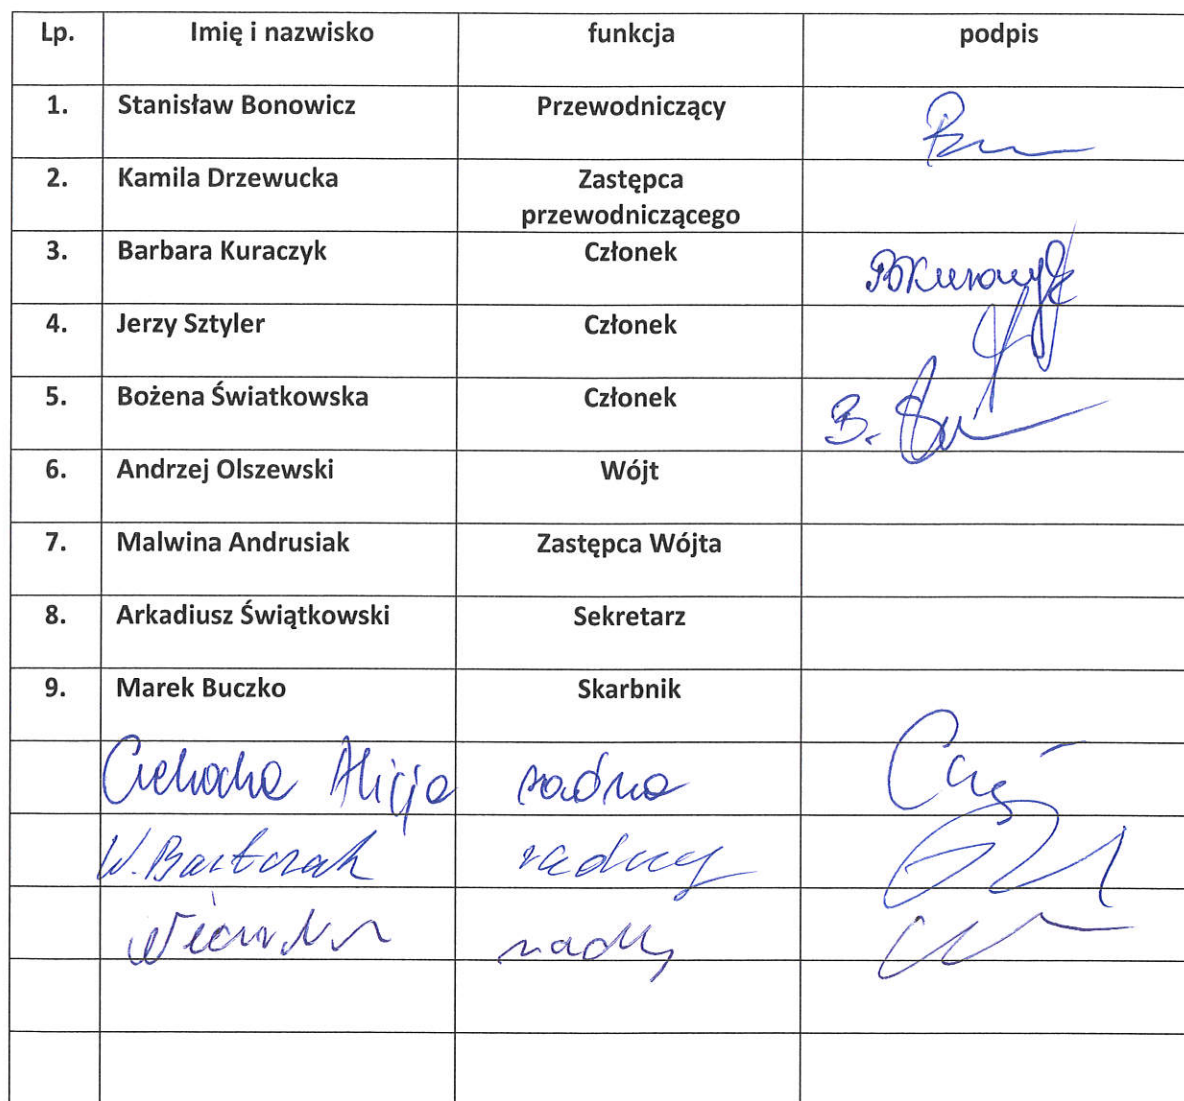 Lp. Imię i nazwisko funkcja podpis
1. Stanisław Bonowicz Przewodniczący
2. Kamila Drzewucka Zastępca
przewodniczącego
3. Barbara Kuraczyk Członek
4. Jerzy Sztyler Członek
5. Bożena Światkowska Członek
6. Andrzej Olszewski Wójt
7. Malwina Andrusiak Zastępca Wójta
8. Arkadiusz Świątkowski Sekretarz
9. Marek Buczko Skarbnik
Alicja radna
W. Bartczak radny